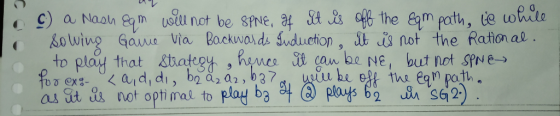 c) a Nash Eqm will not be SPNE, if it is off the Eqm path, ie while
Solving Game via Backwards Induction, it is not the Rational.
to play that strategy, hence it can be NE, but not SPNE →
for exs- < a, d, d, b2 a2 a2, b3 > will be off the Eqm path.
as it is not optimal to play b3 if ② plays b2 in SG2.).